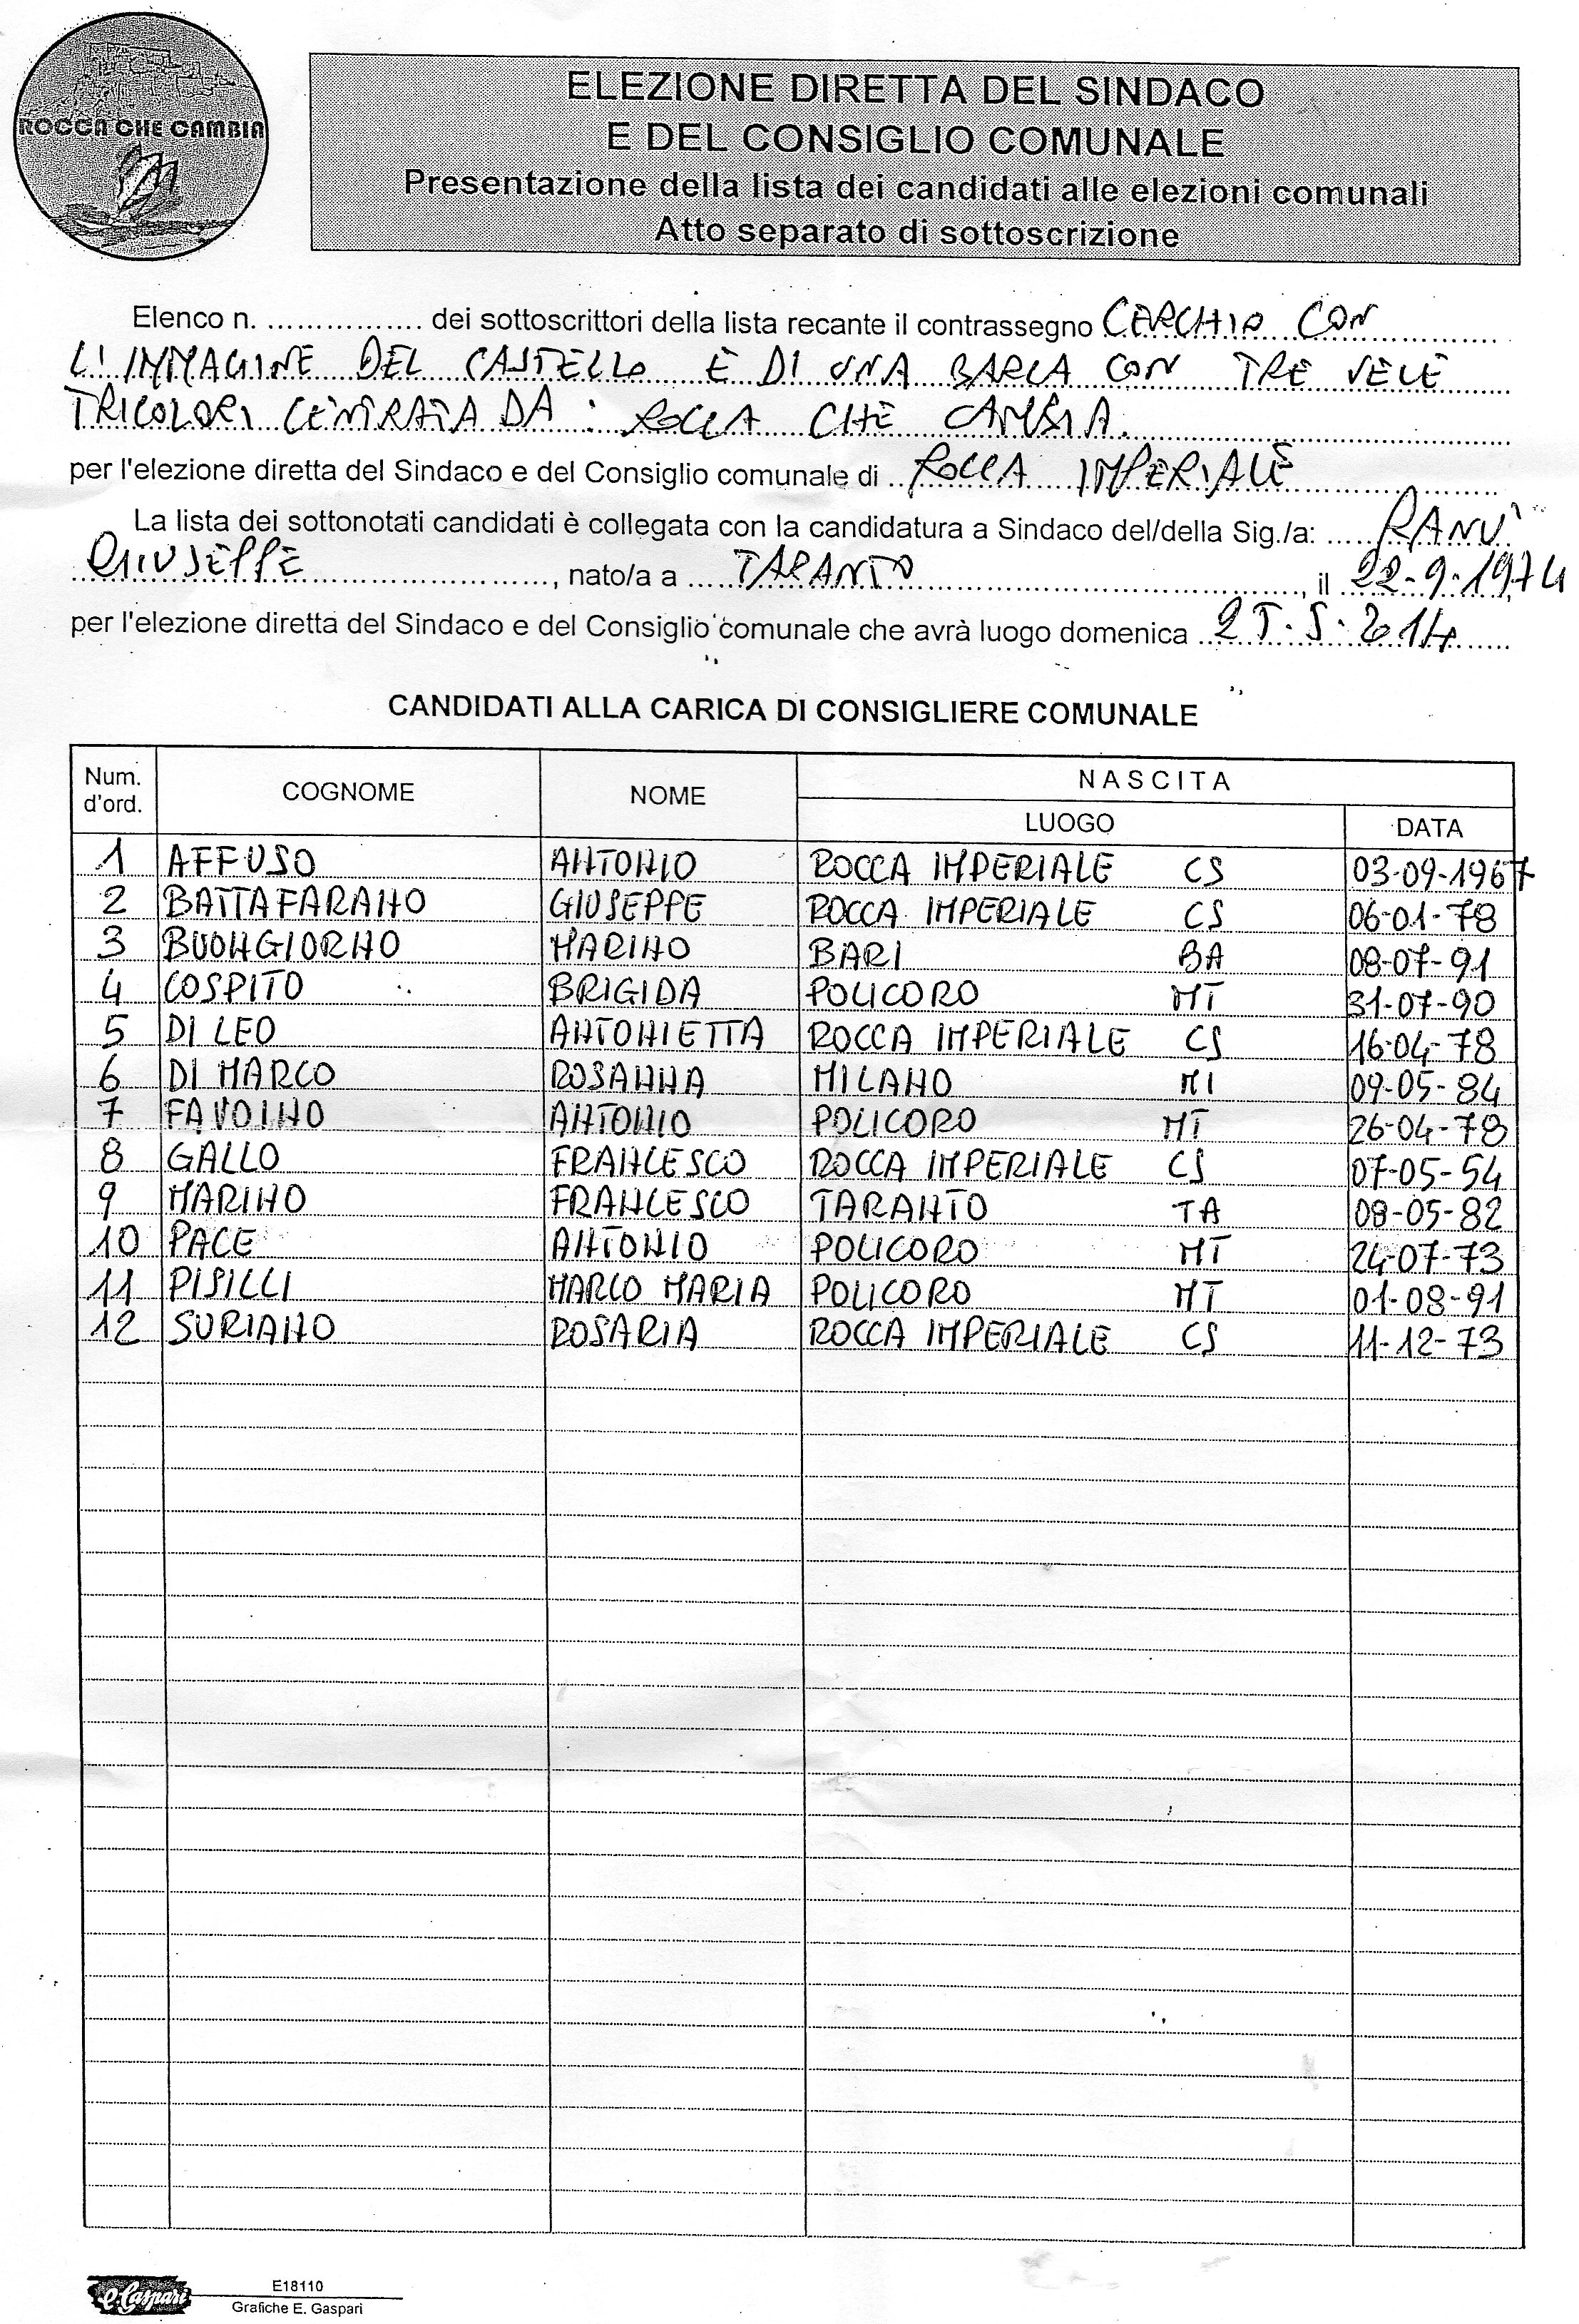 ROCCA CHE CAMBIA
ELEZIONE DIRETTA DEL SINDACO
E DEL CONSIGLIO COMUNALE
Presentazione della lista dei candidati alle elezioni comunali
Atto separato di sottoscrizione
Elenco n. ................ dei sottoscrittori della lista recante il contrassegno CERCHIO CON
L'IMMAGINE DEL CASTELLO E DI UNA BARCA CON TRE VELE
TRICOLORI CENTRATA DA : ROCCA CHE CAMBIA.
per l'elezione diretta del Sindaco e del Consiglio comunale di ROCCA IMPERIALE
La lista dei sottonotati candidati è collegata con la candidatura a Sindaco del/della Sig./a: RANU'
GIUSEPPE, nato/a a TARANTO, il 22-9-1974
per l'elezione diretta del Sindaco e del Consiglio comunale che avrà luogo domenica 25.5.2014
CANDIDATI ALLA CARICA DI CONSIGLIERE COMUNALE
Num. d'ord. COGNOME NOME NASCITA
LUOGO DATA
1 AFFUSO ANTONIO ROCCA IMPERIALE CS 03-09-1967
2 BATTAFARANO GIUSEPPE ROCCA IMPERIALE CS 06-01-78
3 BUONGIORNO MARINO BARI BA 08-07-91
4 COSPITO BRIGIDA POLICORO MT 31-07-90
5 DI LEO ANTONIETTA ROCCA IMPERIALE CS 16-04-78
6 DI MARCO ROSANNA MILANO MI 09-05-84
7 FAVOINO ANTONIO POLICORO MT 26-04-78
8 GALLO FRANCESCO ROCCA IMPERIALE CS 07-05-54
9 MARINO FRANCESCO TARANTO TA 08-05-82
10 PACE ANTONIO POLICORO MT 24-07-73
11 PISILLI MARCO MARIA POLICORO MT 01-08-91
12 SURIANO ROSARIA ROCCA IMPERIALE CS 11-12-73
e.Gaspari E18110
Grafiche E. Gaspari